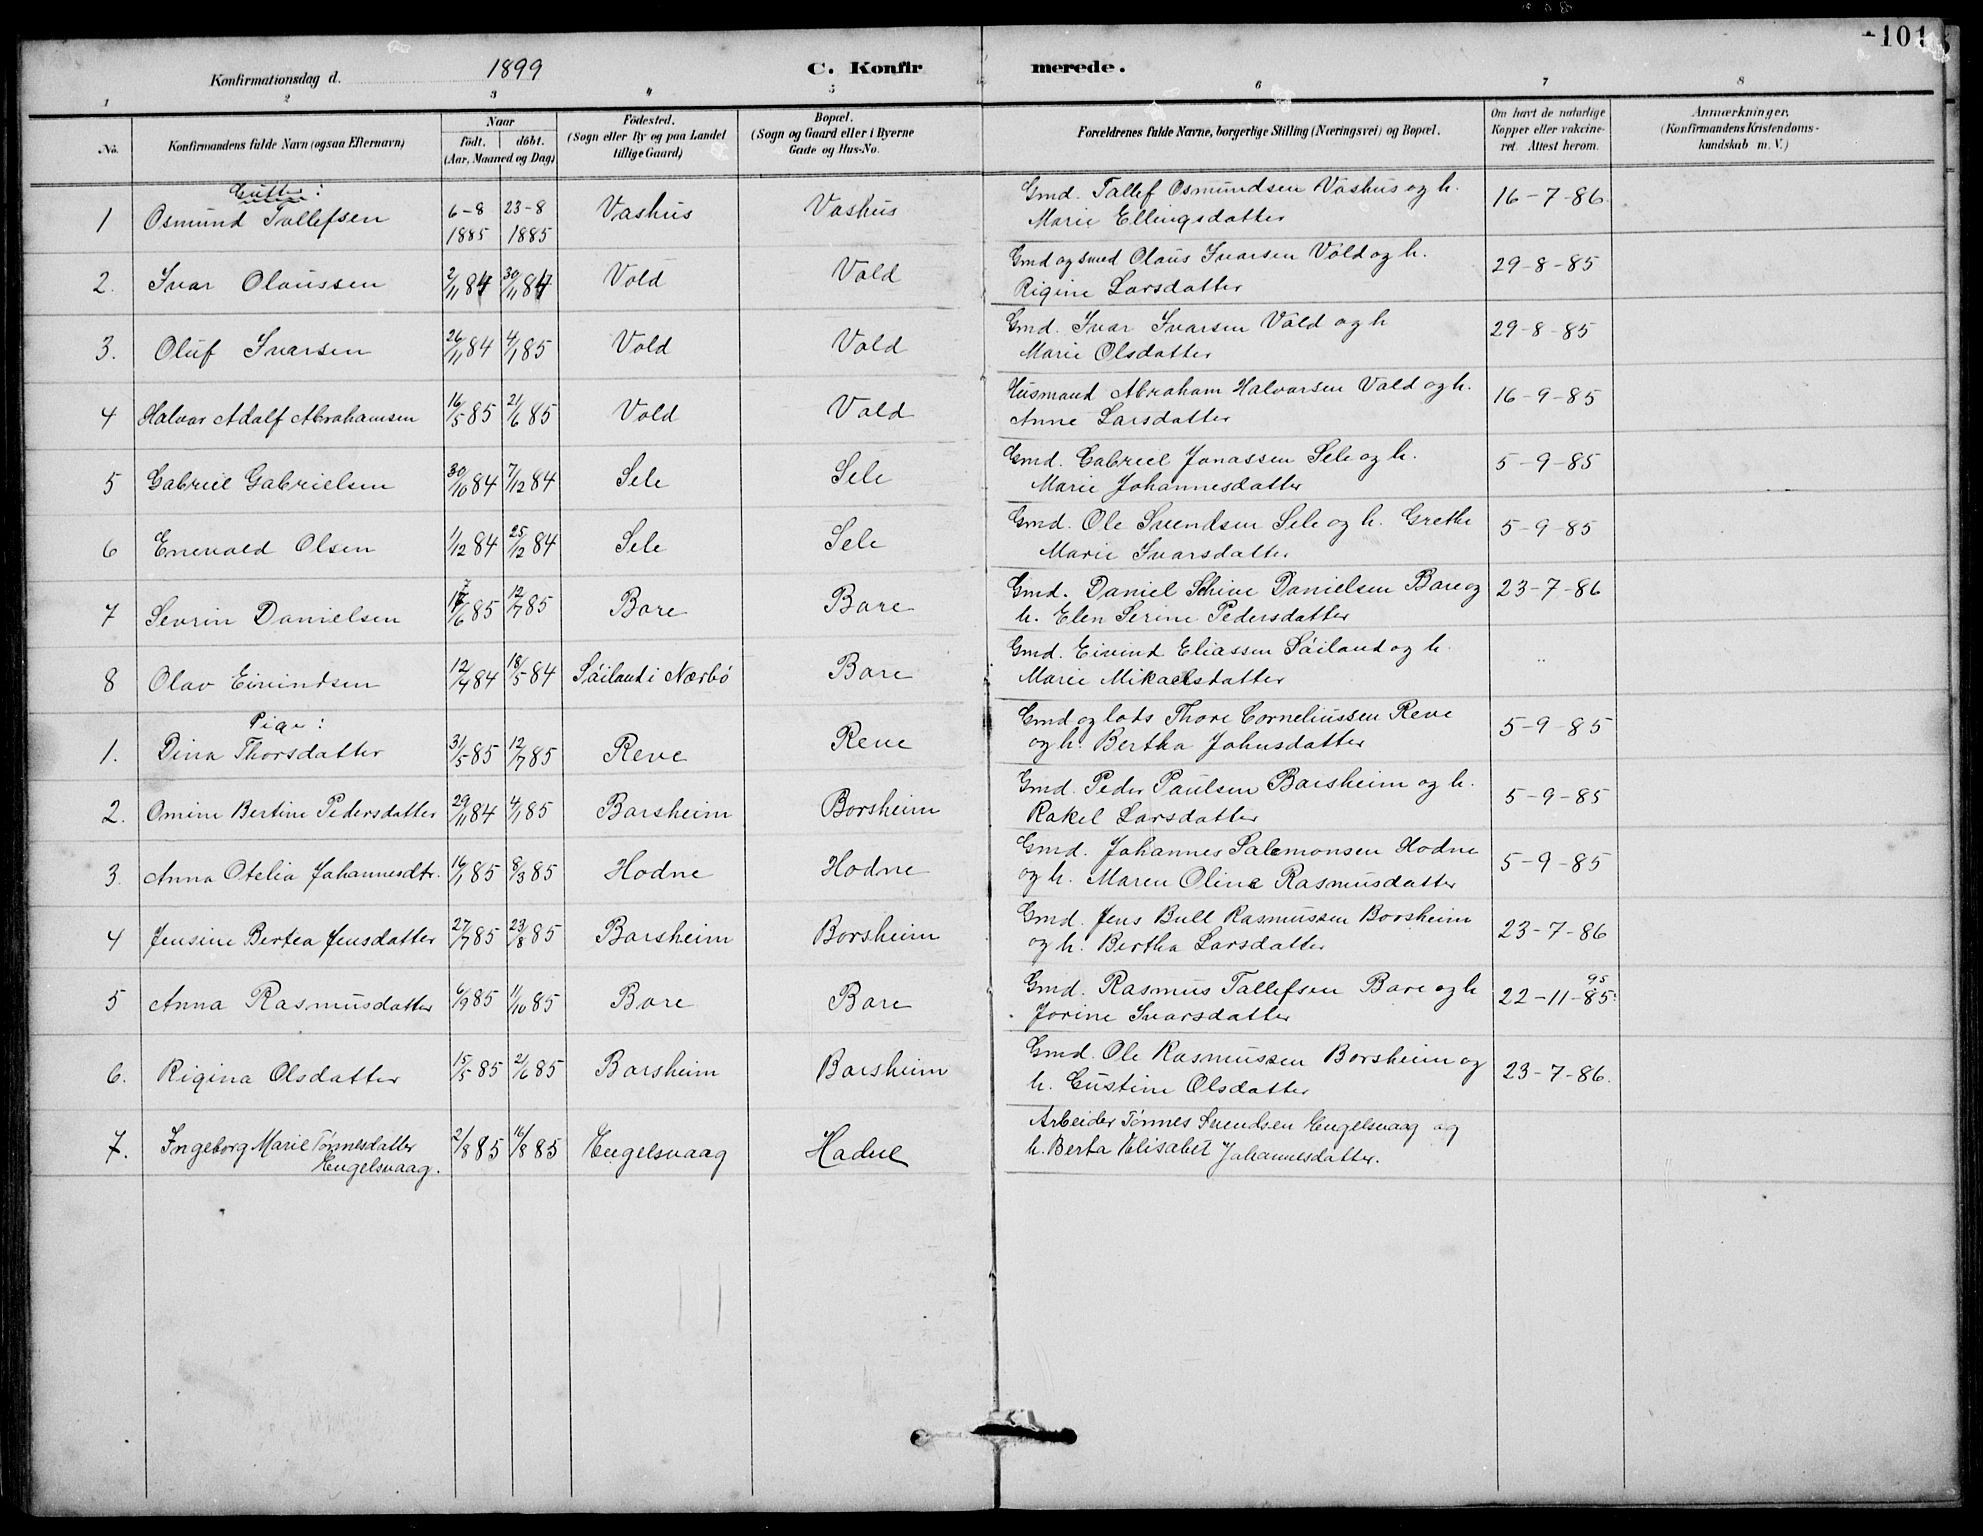 101
Konfirmationsdag d. 1899 C. Konfirmerede.
1 2 3 4 5 6 7 8
No. Konfirmandens fulde Navn (ogsaa Efternavn) Naar födt. döbt. (Aar, Maaned og Dag) Födested. (Sogn eller By og paa Landet tillige Gaard) Bopæl. (Sogn og Gaard eller i Byerne Gade og Hus-No. Forældrenes fulde Navne, borgerlige Stilling (Næringsvei) og Bopæl. Om havt de naturlige Kopper eller vakcineret. Attest herom. Anmærkninger. (Konfirmandens Kristendomskundskab m. V.)
Gutter:
1 Osmund Tallefsen 6-8 1885 23-8 1885 Vashus Vashus Gmd. Tallef Osmundsen Vashus og h. 16-7-86
Marie Ellingsdatter
2. Ivar Olaussen 2/11 84 30/11 84 Vold Vold Gmd og smed Olaus Ivarsen Vold og h. 29-8-85
Rigine Larsdatter
3. Oluf Ivarsen 26/11 84 4/1 85 Vold Vold Gmd. Ivar Ivarsen Vold og h 29-8-85
Marie Olsdatter
4 Halvar Adolf Abrahamsen 16/5 85 21/6 85 Vold Vold Husmand Abraham Halvorsen Vold og h. 16-9-85
Anne Larsdatter
5 Gabriel Gabrielsen 30/10 84 7/12 84 Sele Sele Gmd. Gabriel Jonassen Sele og h. 5-9-85
Marie Johannesdatter
6 Enevald Olsen 1/12 84 25/12 84 Sele Sele Gmd. Ole Svendsen Sele og h. Grethe 5-9-85
Marie Ivarsdatter
7 Sevrin Danielsen /6 85 12/7 85 Bore Bore Gmd. Daniel Danielsen Bore og 23-7-86
h. Elen Serine Pedersdatter
8 Olav Eivindsen 12/4 84 18/5 84 Söiland i Nærbö Bore Gmd. Eivind Eliassen Söiland og h. ..
Marie Mikaelsdatter
Pige:
1. Dina Thorsdatter 31/5 85 12/7 85 Reve Reve Gmd og lods Thore Corneliussen Reve 5-9-85
og h. Bertha Johnsdatter
2. Omine Bertine Pedersdatter 29/11 84 4/1 85 Borsheim Borsheim Gmd. Peder Paulsen Borsheim og h. 5-9-85
Rakel Larsdatter
3. Anna Otelia Johannesdtr. 16/1 85 8/3 85 Hodne Hodne Gmd. Johannes Salemonsen Hodne 5-9-85
og h. Maren Oline Rasmusdatter
4 Jensine Bertea Jensdatter 27/7 85 23/8 85 Borsheim Borsheim Gmd. Jens Bull Rasmussen Borsheim 23-7-86
og h. Bertha Larsdatter
5 Anna Rasmusdatter 6/9 85 11/10 85 Bore Bore Gmd. Rasmus Tallefsen Bore og h 22-11-85. 95
Jorine Ivarsdatter
6. Rigina Olsdatter 15/5 85 21/6 85 Borsheim Borsheim Gmd. Ole Rasmussen Borsheim og 23-7-86.
h. Gustine Olsdatter
7. Ingeborg Marie Tönnesdatter 2/8 85 16/8 85 Engelsvaag Hodne Arbeider Tönnes Svendsen Engelsvaag og
Engelsvaag. h. Berta Elisabet Johannesdatter.